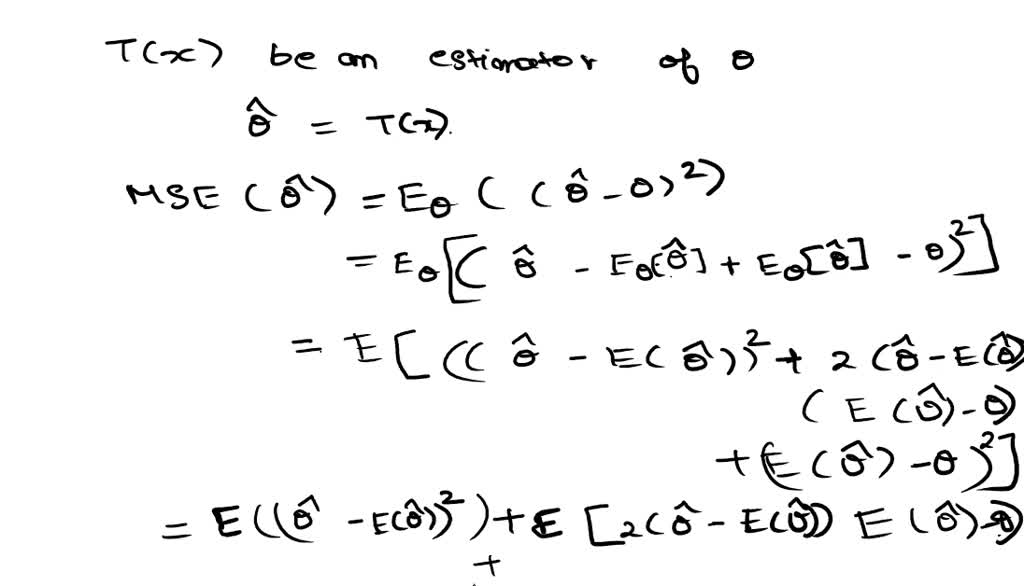 T(x) be an estimator of θ
θ̂ = T(x).
MSE (θ̂) = Eθ ( ( θ̂ - θ )²)
= Eθ [( θ̂ - Eθ[θ̂] + Eθ[θ̂] - θ)²]
= E [ (( θ̂ - E(θ̂))² + 2 (θ̂ - E(θ̂)
( E (θ̂) - θ)
+ (E (θ̂) - θ )²]
= E((θ̂ - E(θ̂))²) + E [2(θ̂ - E(θ̂)) E (θ̂) - θ)
+